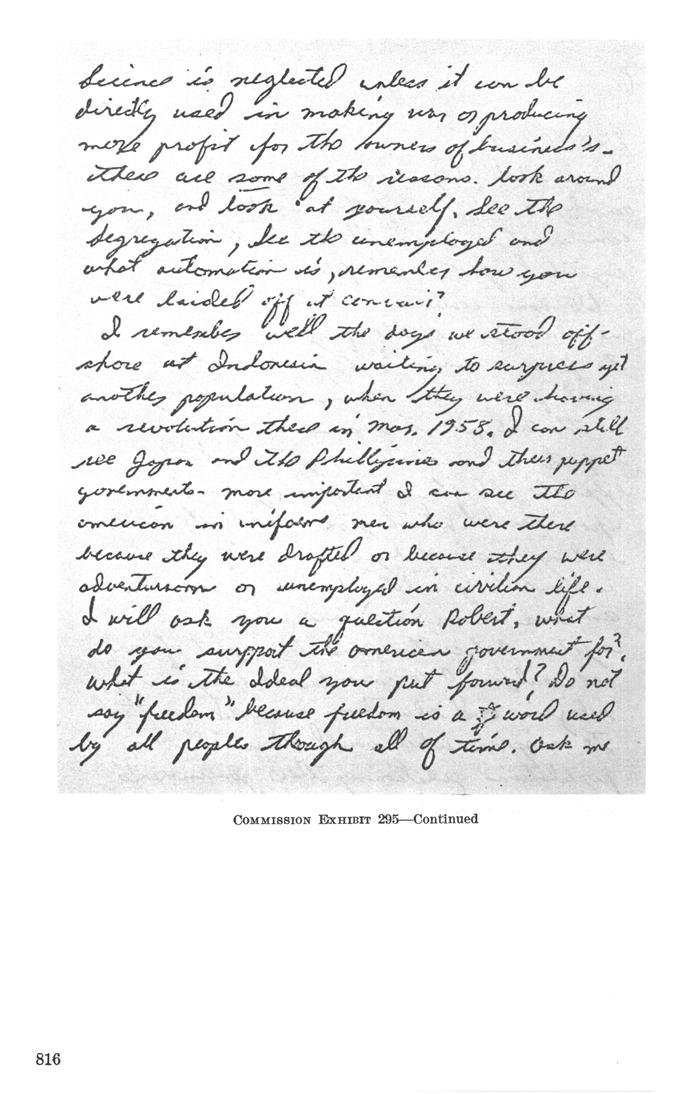 Science is neglected unless it can be
directly used in making war or producing
more profit for the owners of business's.
these are some of the reasons. look around
you, and look at yourself. See the
segregation, see the unemployed and
what automation is, remember how you
were laided off at convair?
I remember well the days we stood off-
shore at Indonesia waiting to surpress yet
another population, when they were having
a revolution there in Mar. 1958. I can still
see Japan and the Phillipines and their puppet
governments. more important I can see the
american in uniforms men who were there
because they were drafted or because they were
adventursom or unemployed in civilian life.
I will ask you a question Robert, what
do you surpport the american government for?
what is the Ideal you put forward? Do not
say "freedom" because freedom is a word used
by all peoples though all of time. Ask me
COMMISSION EXHIBIT 295—Continued
816